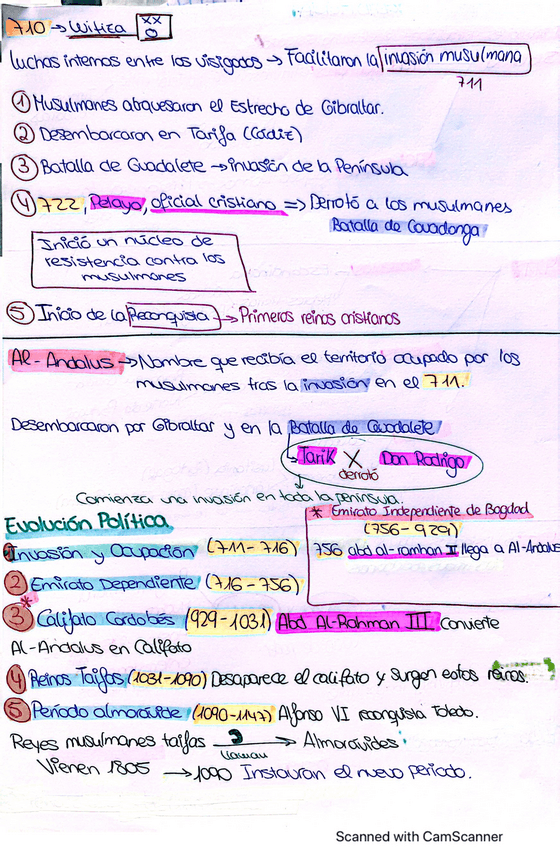 710 → Witiza XX O
luchas internas entre los visigodos → Facilitaron la invasión musulmana
711
① Musulmanes atraquesaron el Estrecho de Gibraltar.
② Desembarcaron en Tarifa (Cádiz)
③ Batalla de Guadalete → invasión de la Península
④ 722, Pelayo, oficial cristiano ⇒ Derrotó a los musulmanes
Batalla de Covadonga
Inició un núcleo de
resistencia contra los
musulmanes
⑤ Inicio de la Reconquista → Primeros reinos cristianos
Al-Andalus → Nombre que recibía el territorio ocupado por los
musulmanes tras la invasión en el 711.
Desembarcaron por Gibraltar y en la Batalla de Guadalete
Tarik X Don Rodrigo
derrotó
Comienza una invasión en toda la península.
Evolución Política
* Emirato Independiente de Bagdad
(756-929)
756 abd al-ramhan I llega a Al-Andalus
Invasión y Ocupación (711-716)
② Emirato Dependiente (716-756)
③* Califato Cordobés (929-1031) Abd Al-Rahman III Convierte
Al-Andalus en Califato
④ Reinos Taifas (1031-1090) Desaparece el califato y surgen estos reinos.
⑤ Período almorávide (1090-1147) Alfonso VI reconquista Toledo.
Reyes musulmanes taifas → Almorávides
llaman
Vienen 1805 → 1090 Instauran el nuevo período.
Scanned with CamScanner